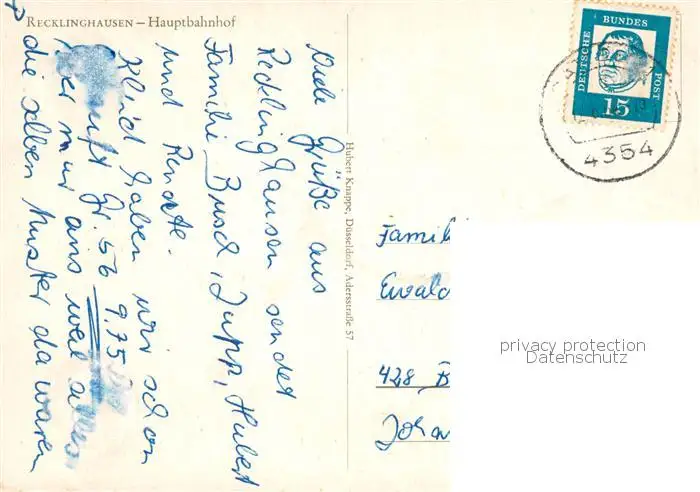 RECKLINGHAUSEN — Hauptbahnhof
Viele Grüße aus
Recklinghausen sendet
Familie Busch, Jupp, Hubert
und Renate.
Kleid haben wir schon
gekauft Gr. 56 9.75
aber nur eins weil alles
die selben Muster da waren
Hubert Knappe, Düsseldorf, Adersstraße 57
DEUTSCHE BUNDES POST
15
4354
Famili
Ewald
428, B
Joha
privacy protection
Datenschutz